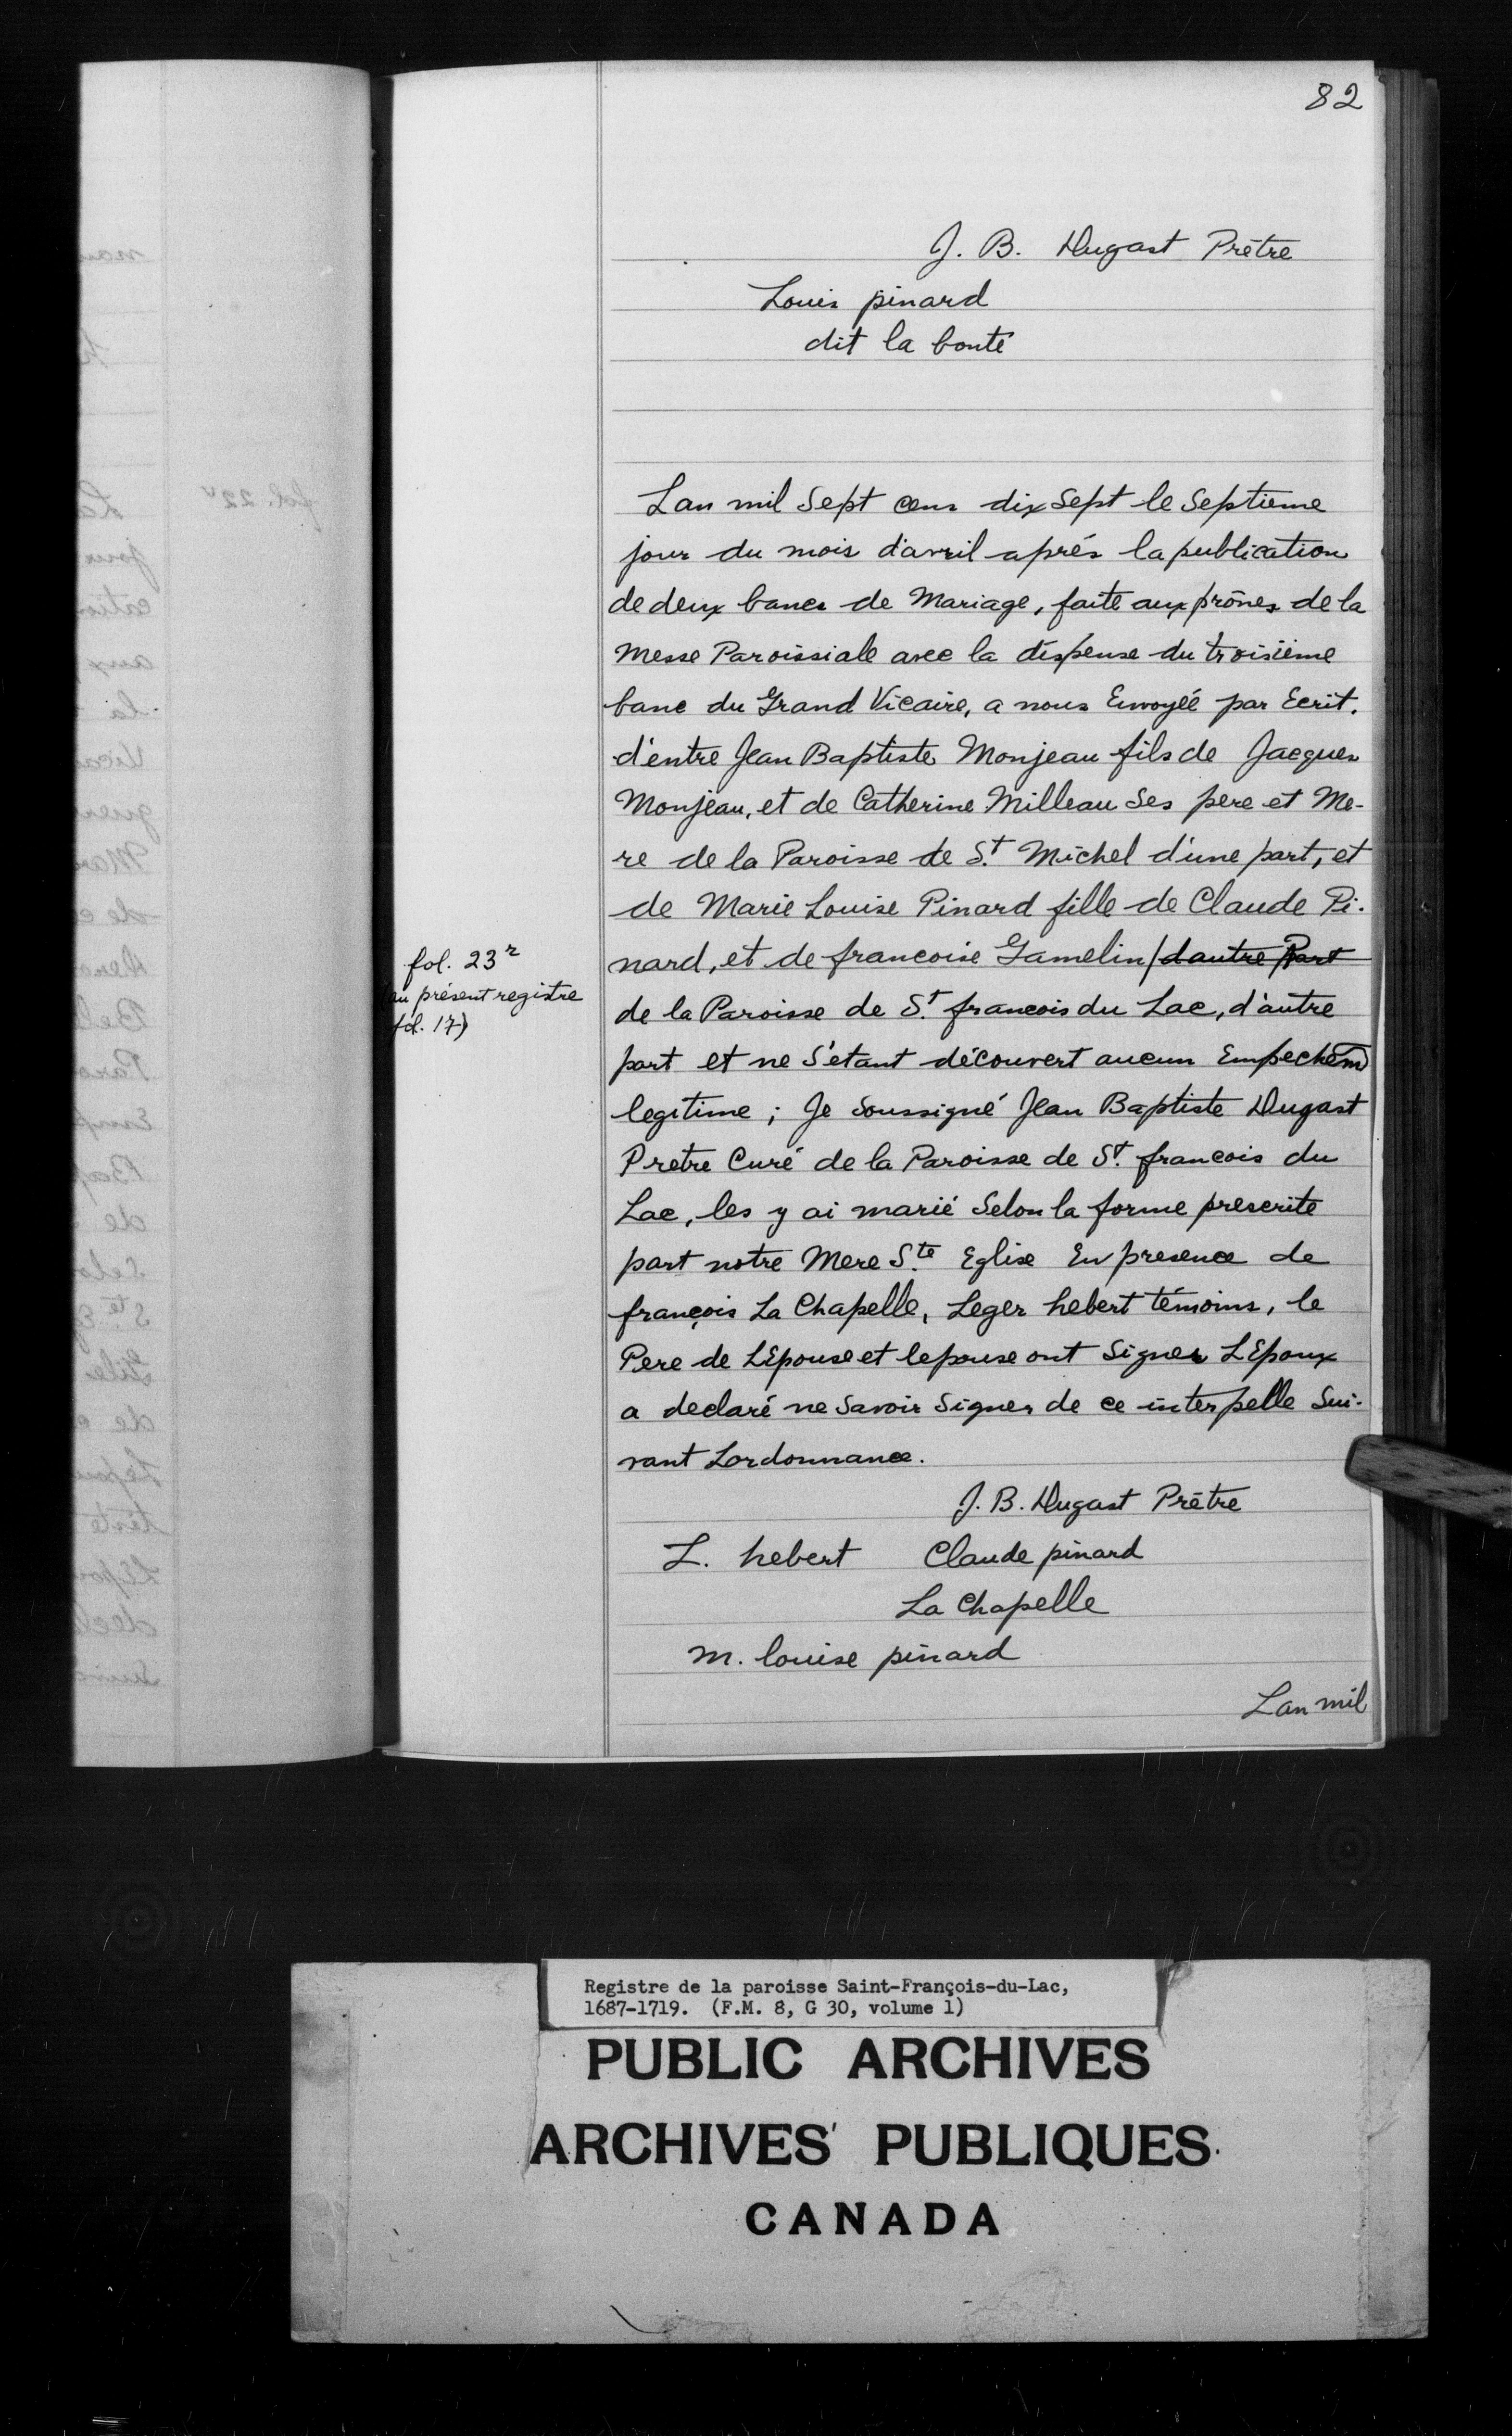 82
J. B. Dugast Prêtre
Louis pinard
dit la bonté
Lan mil Sept cens dix Sept le Septieme
jour du mois d'avril aprés la publication
de deux bancs de Mariage, faite aux prônes de la
Messe Paroissiale avec la dispense du troisiême
banc du Grand Vicaire, a nous Envoyéé par Ecrit.
d'entre Jean Baptiste Monjeau fils de Jacques
Monjeau, et de Catherine Milleau Ses pere et Me-
re de la Paroisse de S.t Michel d'une part, et
de Marie Louise Pinard fille de Claude Pi-
fol. 23r
(au présent registre
fol. 17)
nard, et de francoise Gamelin / dautre Part
de la Paroisse de S.t francois du Lac, d'autre
part et ne S'etant découvert aucun Empechem
legitime ; Je Soussigné Jean Baptiste Dugast
Pretre Curé de la Paroisse de St. francois du
Lac, les y ai marié Selon la forme prescrite
part notre Mere S.te Eglise En presence de
françois La Chapelle, Leger hebert témoins, le
Pere de LEpouse et lepouse ont Signer LEpoux
a declaré ne Savoir Signer de ce interpelle Sui-
vant Lordonnance.
J. B. Dugast Prêtre
L. hebert Claude pinard
La Chapelle
m. louise pinard
Lan mil
Registre de la paroisse Saint-François-du-Lac,
1687-1719. (F.M. 8, G 30, volume 1)
PUBLIC ARCHIVES
ARCHIVES PUBLIQUES
CANADA